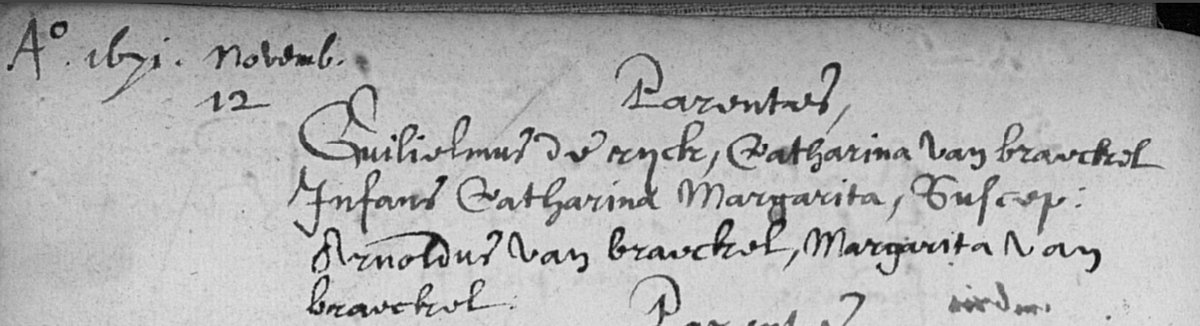 A° . 1671 . Novemb.
12
Parentes,
Guilielmus de ryck, Catharina van braeckel
Infans Catharina Margarita, Suscep:
Arnoldus van braeckel, Margarita van
braeckel.
Parentes